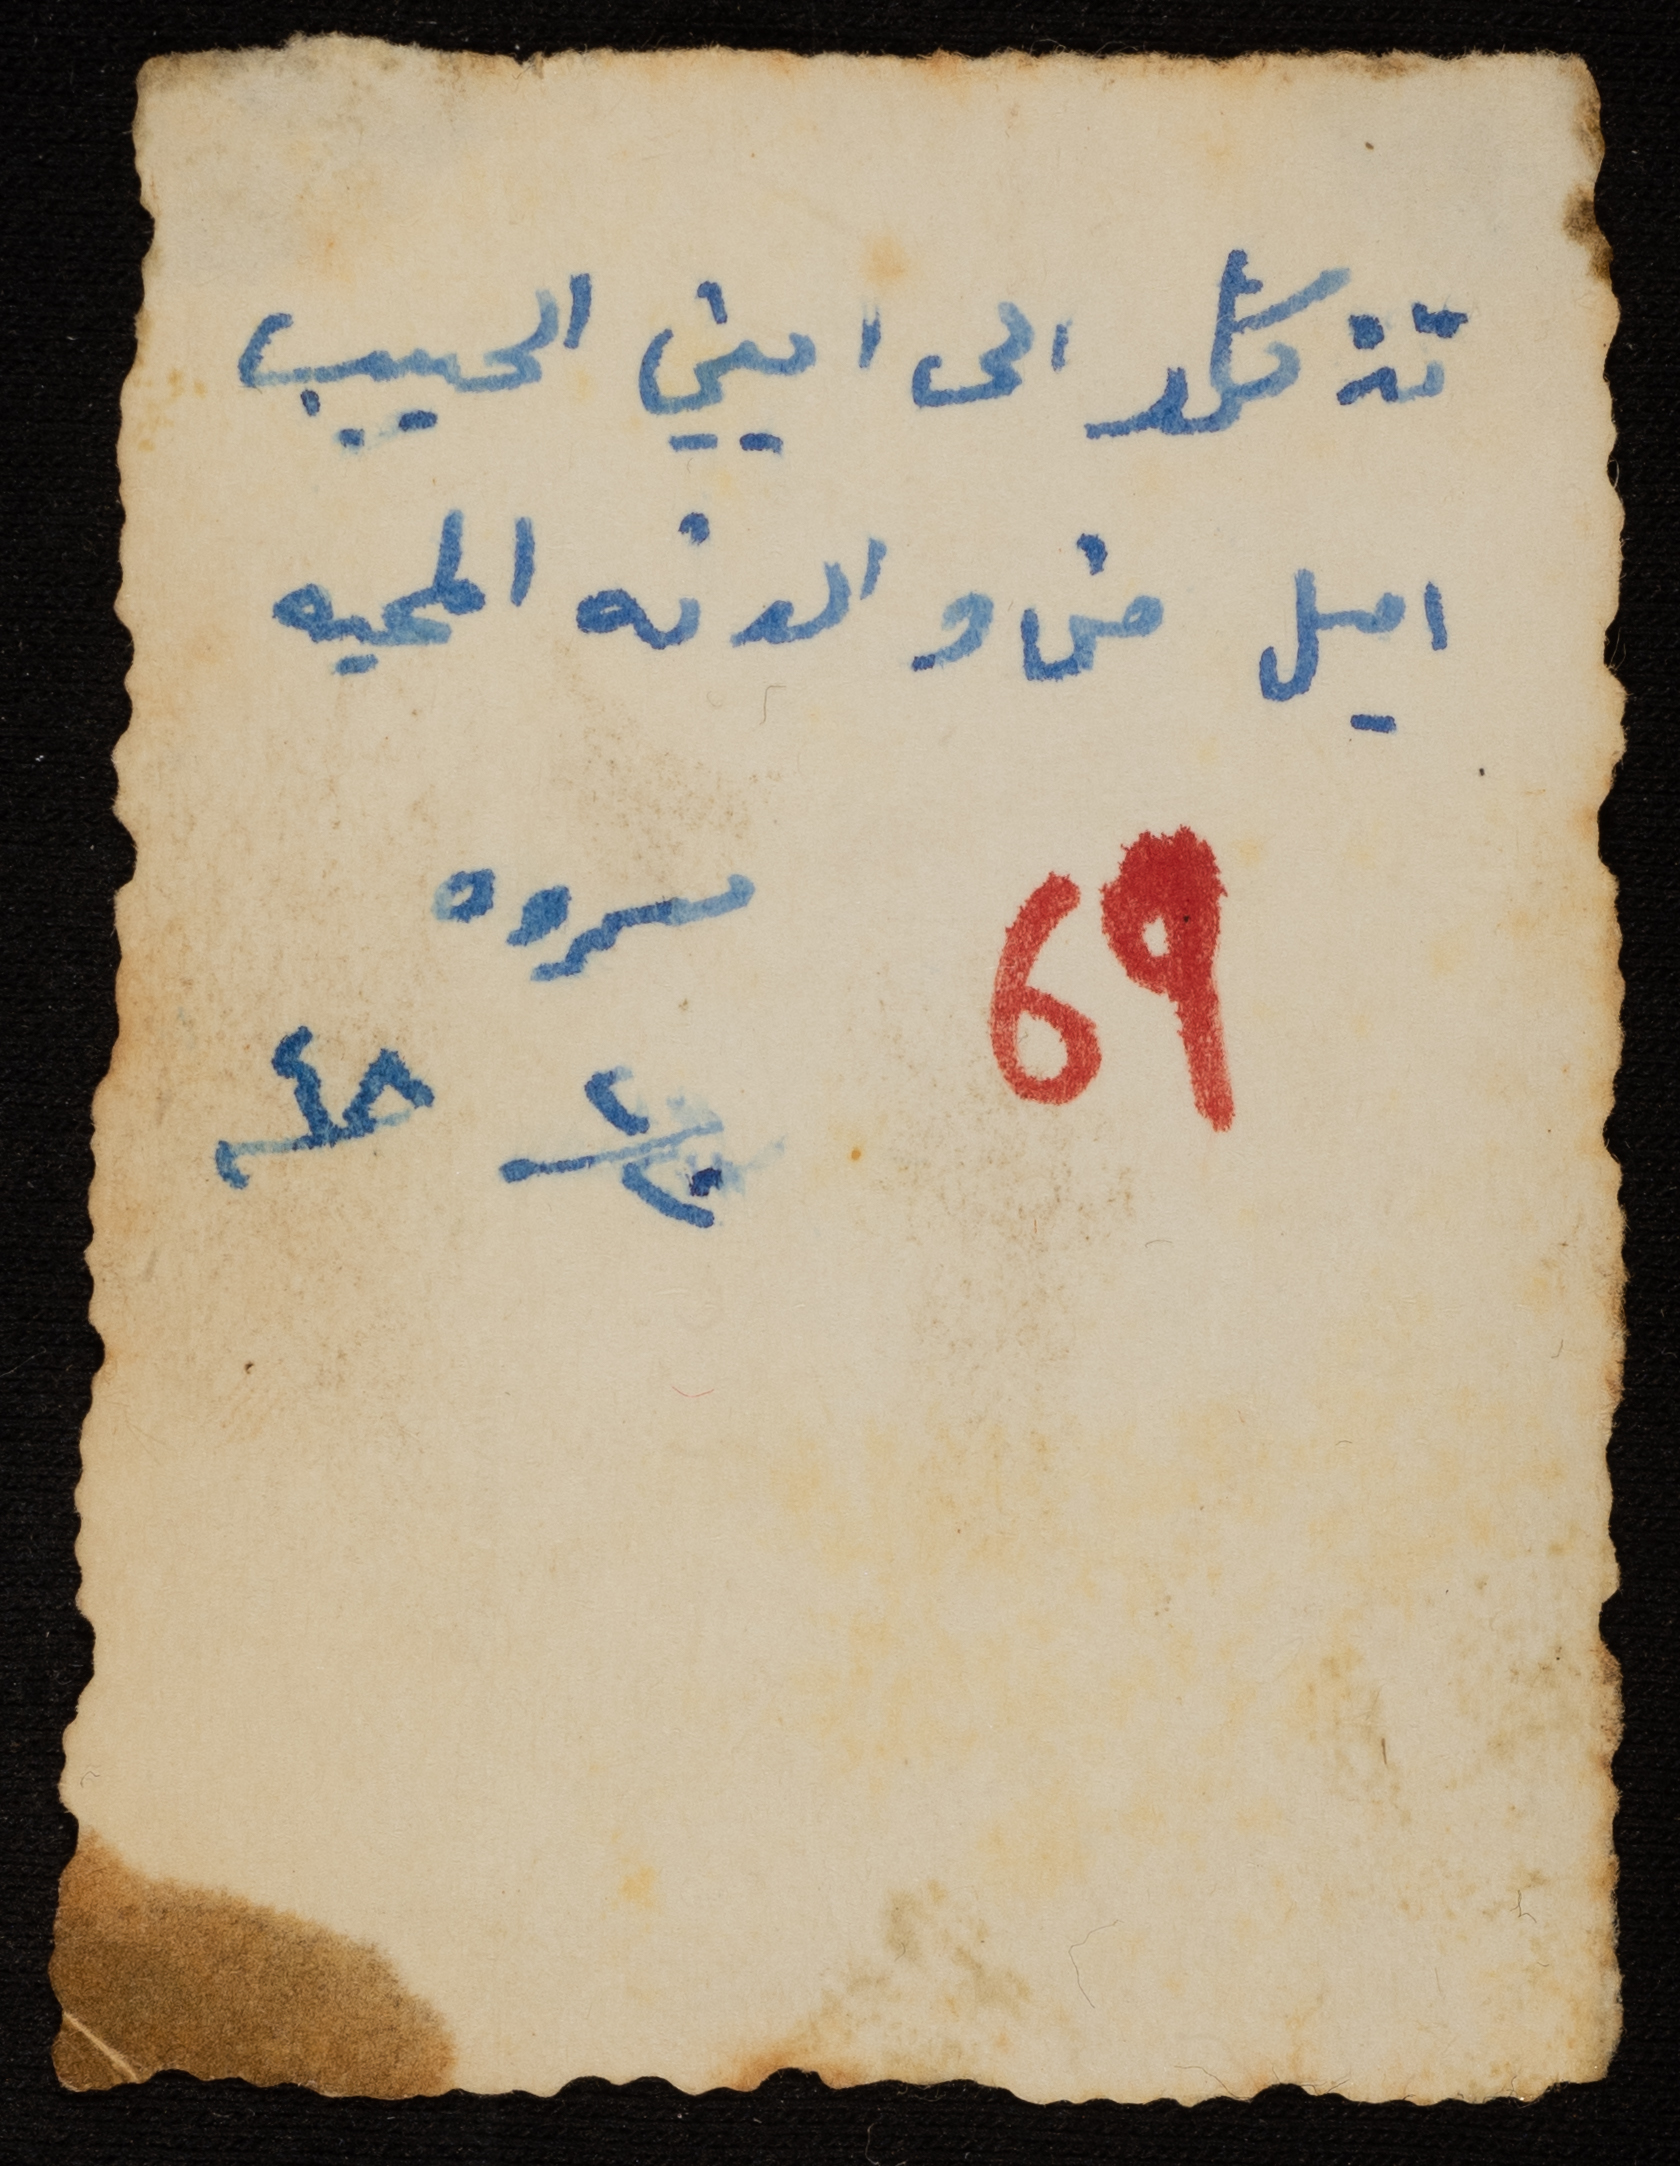 تذكار الى ابني الحبيب
اميل من والدته المحبه
69 سروه
٢٠/٢ ٤٨